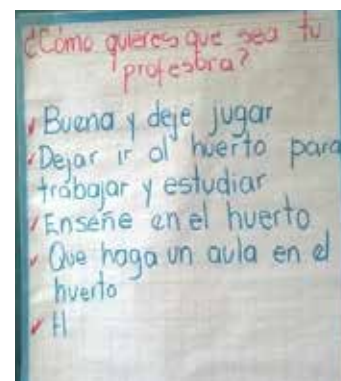 ¿Cómo quieres que sea tu
profesora?
✓ Buena y deje jugar
✓ Dejar ir al huerto para
trabajar y estudiar
✓ Enseñe en el huerto
✓ Que haga un aula en el
huerto
✓ H